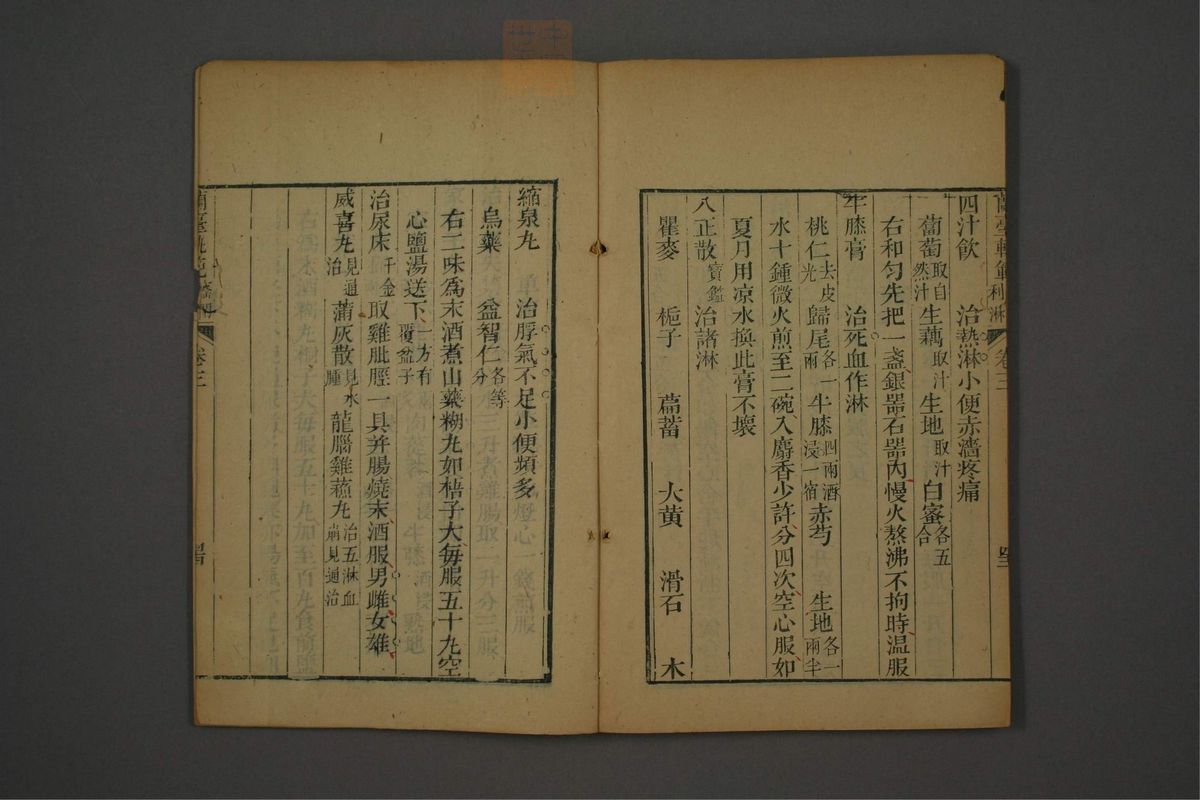 蘭臺軌範利淋 卷三
四汁飲 治熱淋小便赤濇疼痛
葡萄取自然汁 生藕取汁 生地取汁 白蜜各五合
右和勻先把一盞銀器石器內慢火熬沸不拘時温服
牛膝膏 治死血作淋
桃仁去皮光 歸尾各一兩 牛膝四兩酒浸一宿 赤芍 生地各一兩半
水十鍾微火煎至二碗入麝香少許分四次空心服如
夏月用凉水換此膏不壞
八正散寶鑑 治諸淋
瞿麥 梔子 萹蓄 大黄 滑石 木
縮泉丸 治脬氣不足小便頻多
烏藥 益智仁各等分
右二味爲末酒煮山藥糊丸如梧子大每服五十丸空
心鹽湯送下一方有覆盆子
治尿床千金 取雞肶脛一具并腸燒末酒服男雌女雄
威喜丸見通治 蒲灰散見水腫 龍腦雞蘓丸治五淋血崩見通治
卷三